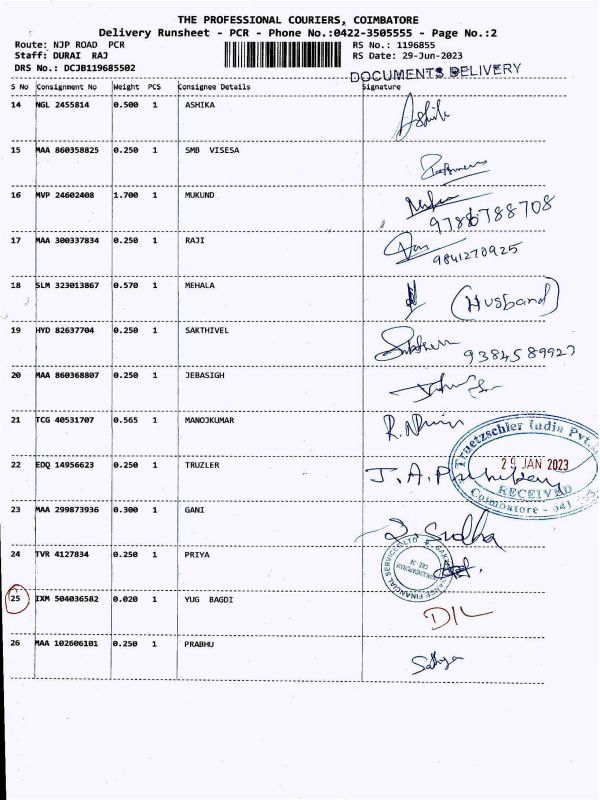 THE PROFESSIONAL COURIERS, COIMBATORE
Delivery Runsheet - PCR - Phone No.:0422-3505555 - Page No.:2
Route: NJP ROAD PCR RS No.: 1196855
Staff: DURAI RAJ RS Date: 29-Jun-2023
DRS No.: DCJB119685502 DOCUMENTS DELIVERY
S No Consignment No Weight PCS Consignee Details Signature
14 NGL 2455814 0.500 1 ASHIKA Ashik
15 MAA 860358825 0.250 1 SMB VISESA
16 MVP 24602408 1.700 1 MUKUND
9786788708
17 MAA 300337834 0.250 1 RAJI
9841270925
18 SLM 323013867 0.570 1 MEHALA (Husband)
19 HYD 82637704 0.250 1 SAKTHIVEL
9384589927
20 MAA 860368807 0.250 1 JEBASIGH
21 TCG 40531707 0.565 1 MANOJKUMAR
Truetzschler India Pvt.
22 EDQ 14956623 0.250 1 TRUZLER J.A. 29 JAN 2023
RECEIVED
Coimbatore - 641
23 MAA 299873936 0.300 1 GANI Sudha
24 TVR 4127834 0.250 1 PRIYA
FINANCIAL SERVICE LTD
25 IXM 504036582 0.020 1 YUG BAGDI D/L
26 MAA 102606101 0.250 1 PRABHU Sathya